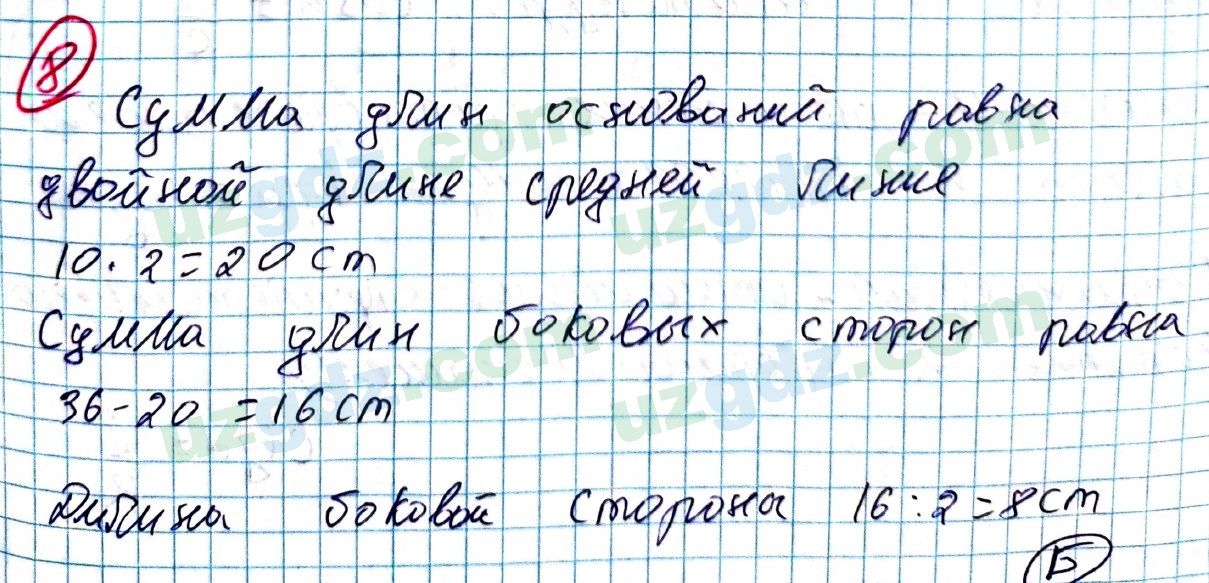 8
Сумма длин оснований равна
двойной длине средней линие
10 · 2 = 20 cm
Сумма длин боковых сторон равна
36 - 20 = 16 cm
Длина боковой сторона 16 : 2 = 8 cm
Б
uzgdz.com
uzgdz.com
uzgdz.com
uzgdz.com